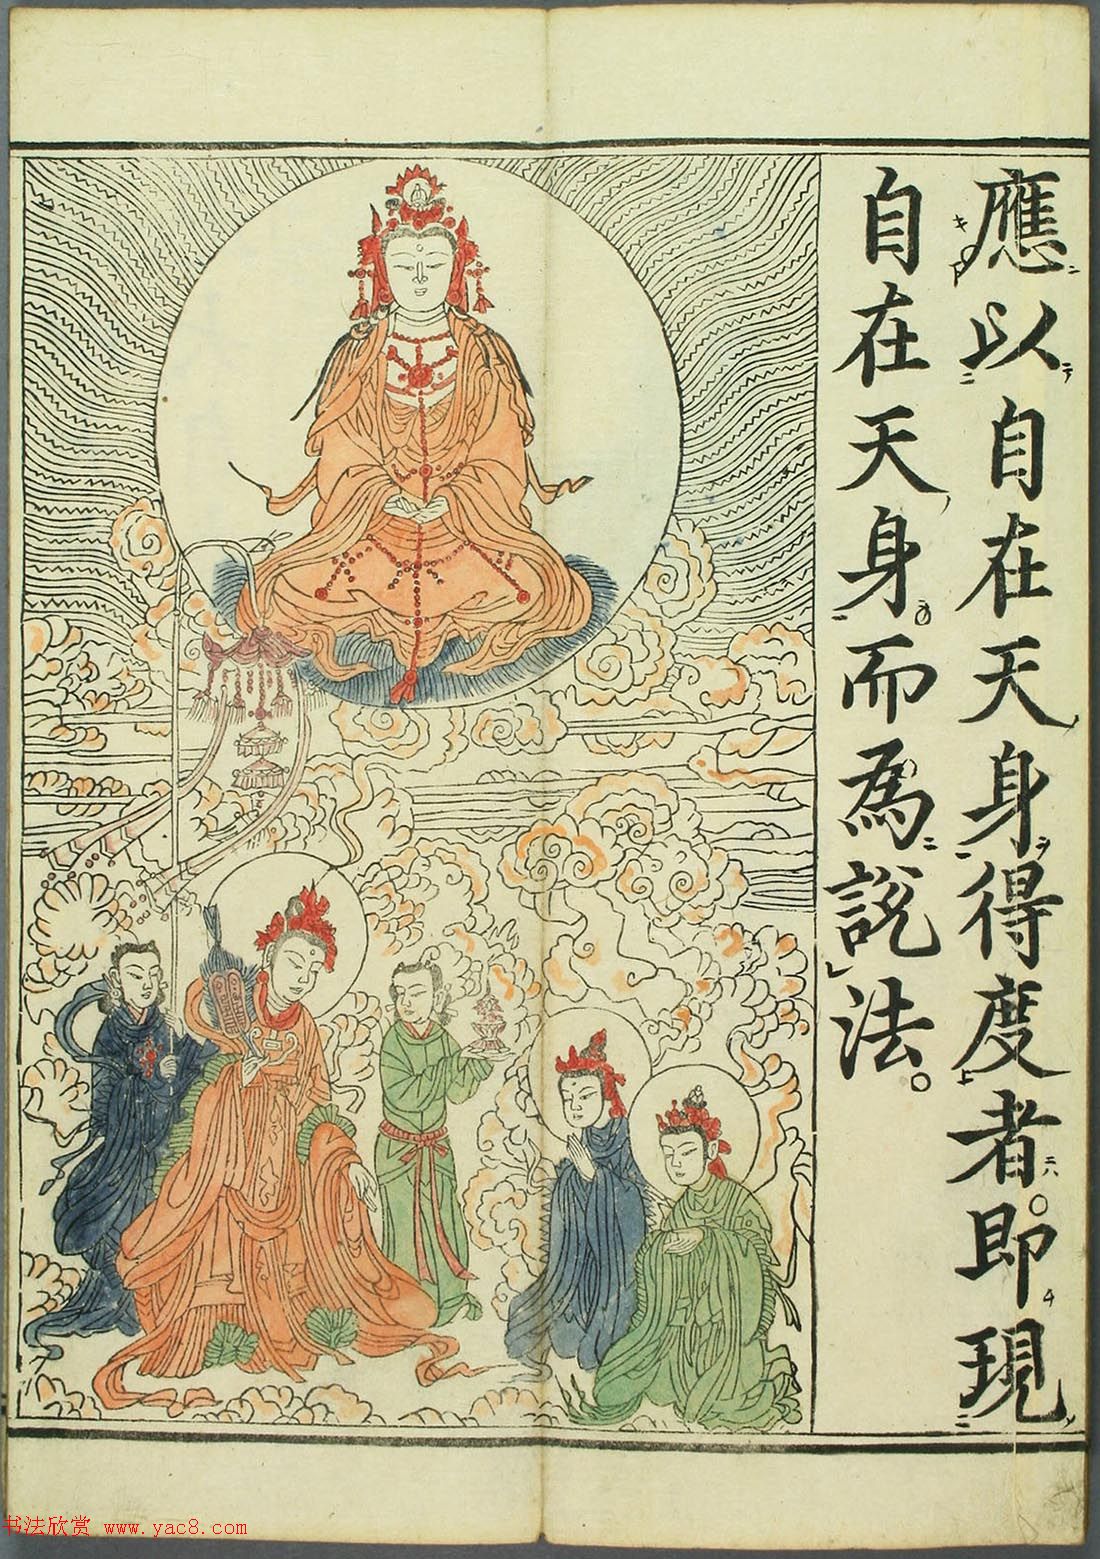 應以自在天身得度者。即現
自在天身而為說法。
书法欣赏 www.yac8.com